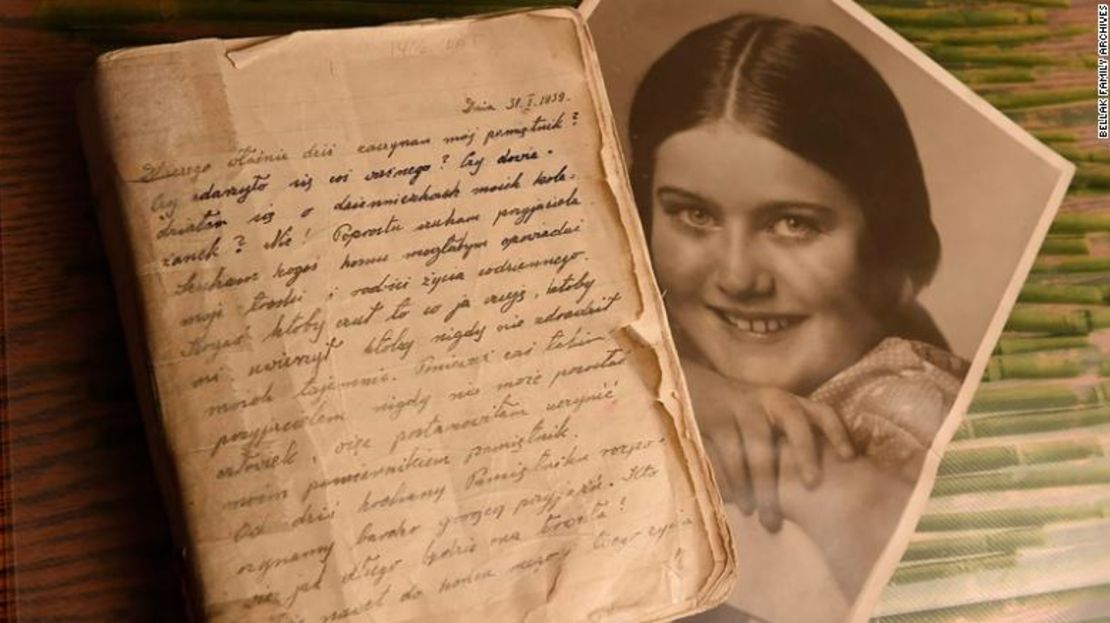 Dnia 31.I.1939.
Dlaczego właśnie dziś zaczynam mój pamiętnik?
Czy zdarzyło się coś ważnego? Czy dowie-
działam się o dzienniczkach moich kole-
żanek? Nie! Poprostu szukam przyjaciela.
Szukam kogoś komu mogłabym opowiadać
moje troski i radości życia codziennego.
Kogoś ktoby czuł to co ja czuję, ktoby
mi uwierzył ktoby nigdy nie zdradził
moich tajemnic. Ponieważ takim
przyjacielem nigdy nie może pozostać
człowiek, więc postanowiłam uczynić
moim powiernikiem pamiętnik.
Od dziś kochany Pamiętniku rozpo-
czynamy bardzo gorącą przyjaźń. Kto
wie jak długo będzie ona trwała?
nawet do końca mego życia
BELLAK FAMILY ARCHIVES